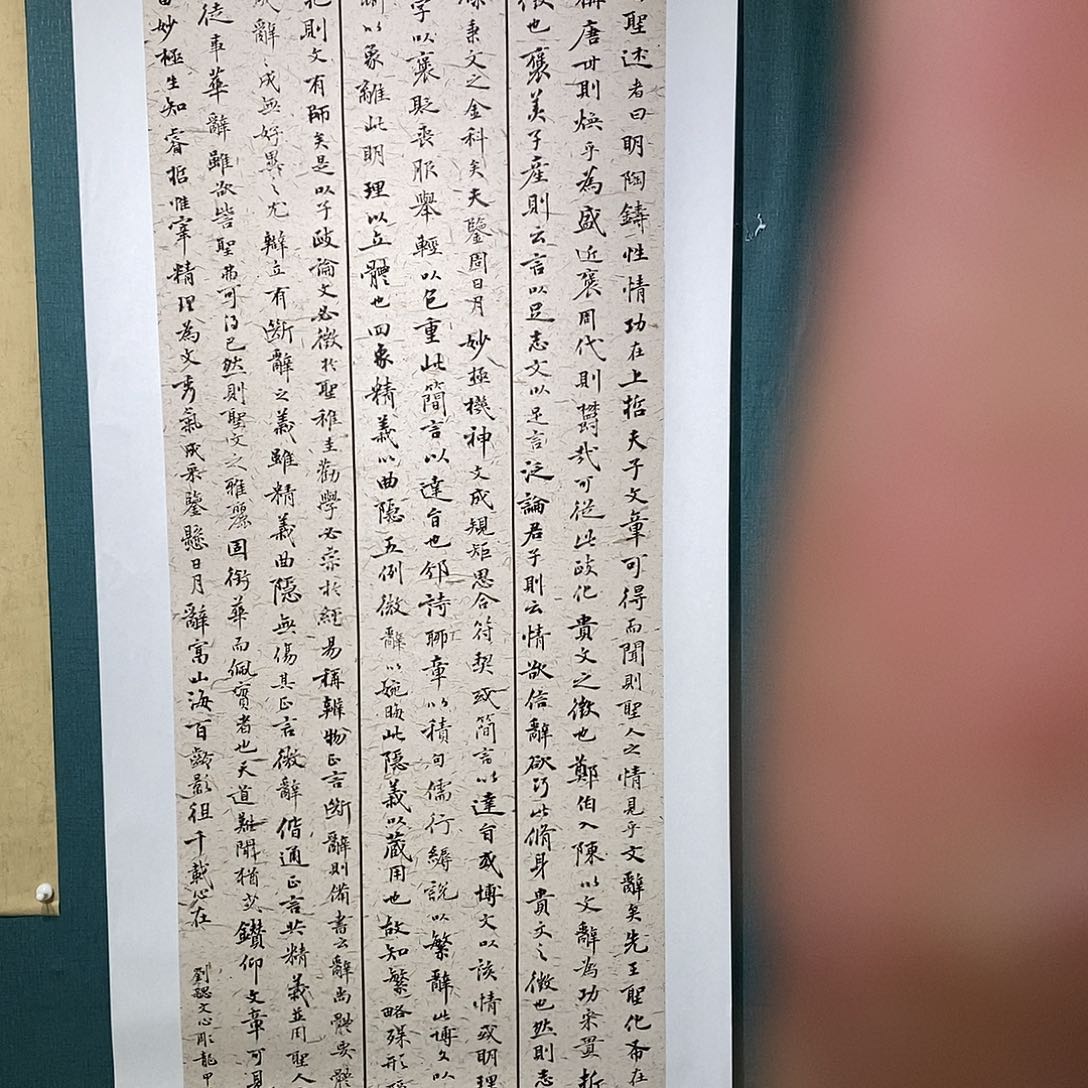 聖述者曰明陶鑄性情功在上哲夫子文章可得而聞則聖人之情見乎文辭矣先王聖化布在
稱唐世則煥乎為盛近褒周代則欝哉可從此政化貴文之徵也鄭伯入陳以文辭為功宋置折
徵也褒美子產則云言以足志文以足言泛論君子則云情欲信辭欲巧此脩身貴文之徵也然則志
秉文之金科矣夫鑒周日月妙極機神文成規矩思合符契或簡言以達旨或博文以該情或明理
字以褒貶喪服舉輕以包重此簡言以達旨也邠詩聯章以積句儒行縟說以繁辭此博文以
斷以象離此明理以立體也四象精義以曲隱五例微辭以婉晦此隱義以藏用也故知繁略殊形隱
則文有師矣是以子政論文必徵於聖稚圭勸學必宗於經易稱辨物正言斷辭則備書云辭尚體要體
成辭〻成無好異〻尤辯立有斷辭之義雖精義曲隱無傷其正言微辭偕通正言共精義並用聖人
徒事華辭雖欲訾聖弗可得已然則聖文之雅麗固銜華而佩實者也天道難聞猶或鑽仰文章可見
妙極生知睿哲惟宰精理為文秀氣成采鑒懸日月辭富山海百齡影徂千載心在
劉勰文心彫龍甲